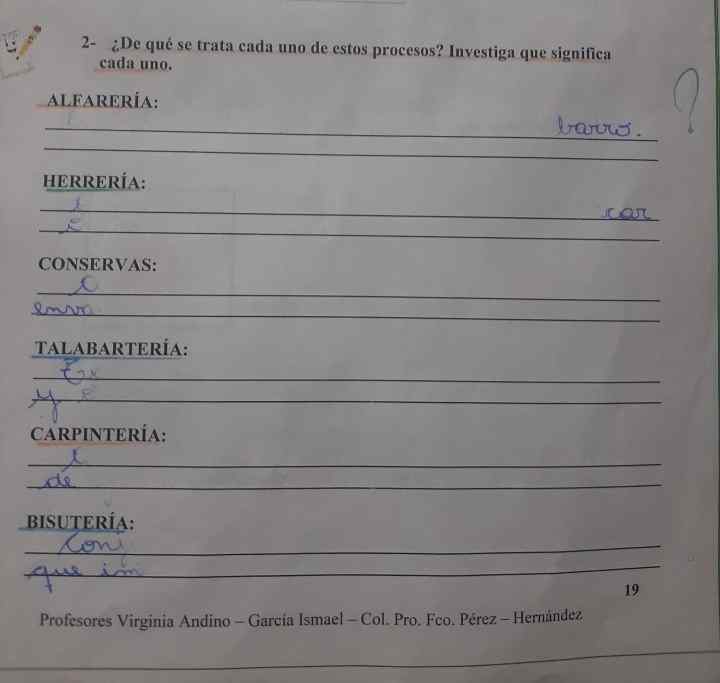 2- ¿De qué se trata cada uno de estos procesos? Investiga que significa
cada uno.
ALFARERÍA:
barro.
HERRERÍA:
car
CONSERVAS:
enva
TALABARTERÍA:
y
CARPINTERÍA:
de
BISUTERÍA:
Conj
que im
19
Profesores Virginia Andino – García Ismael – Col. Pro. Fco. Pérez – Hernández
?